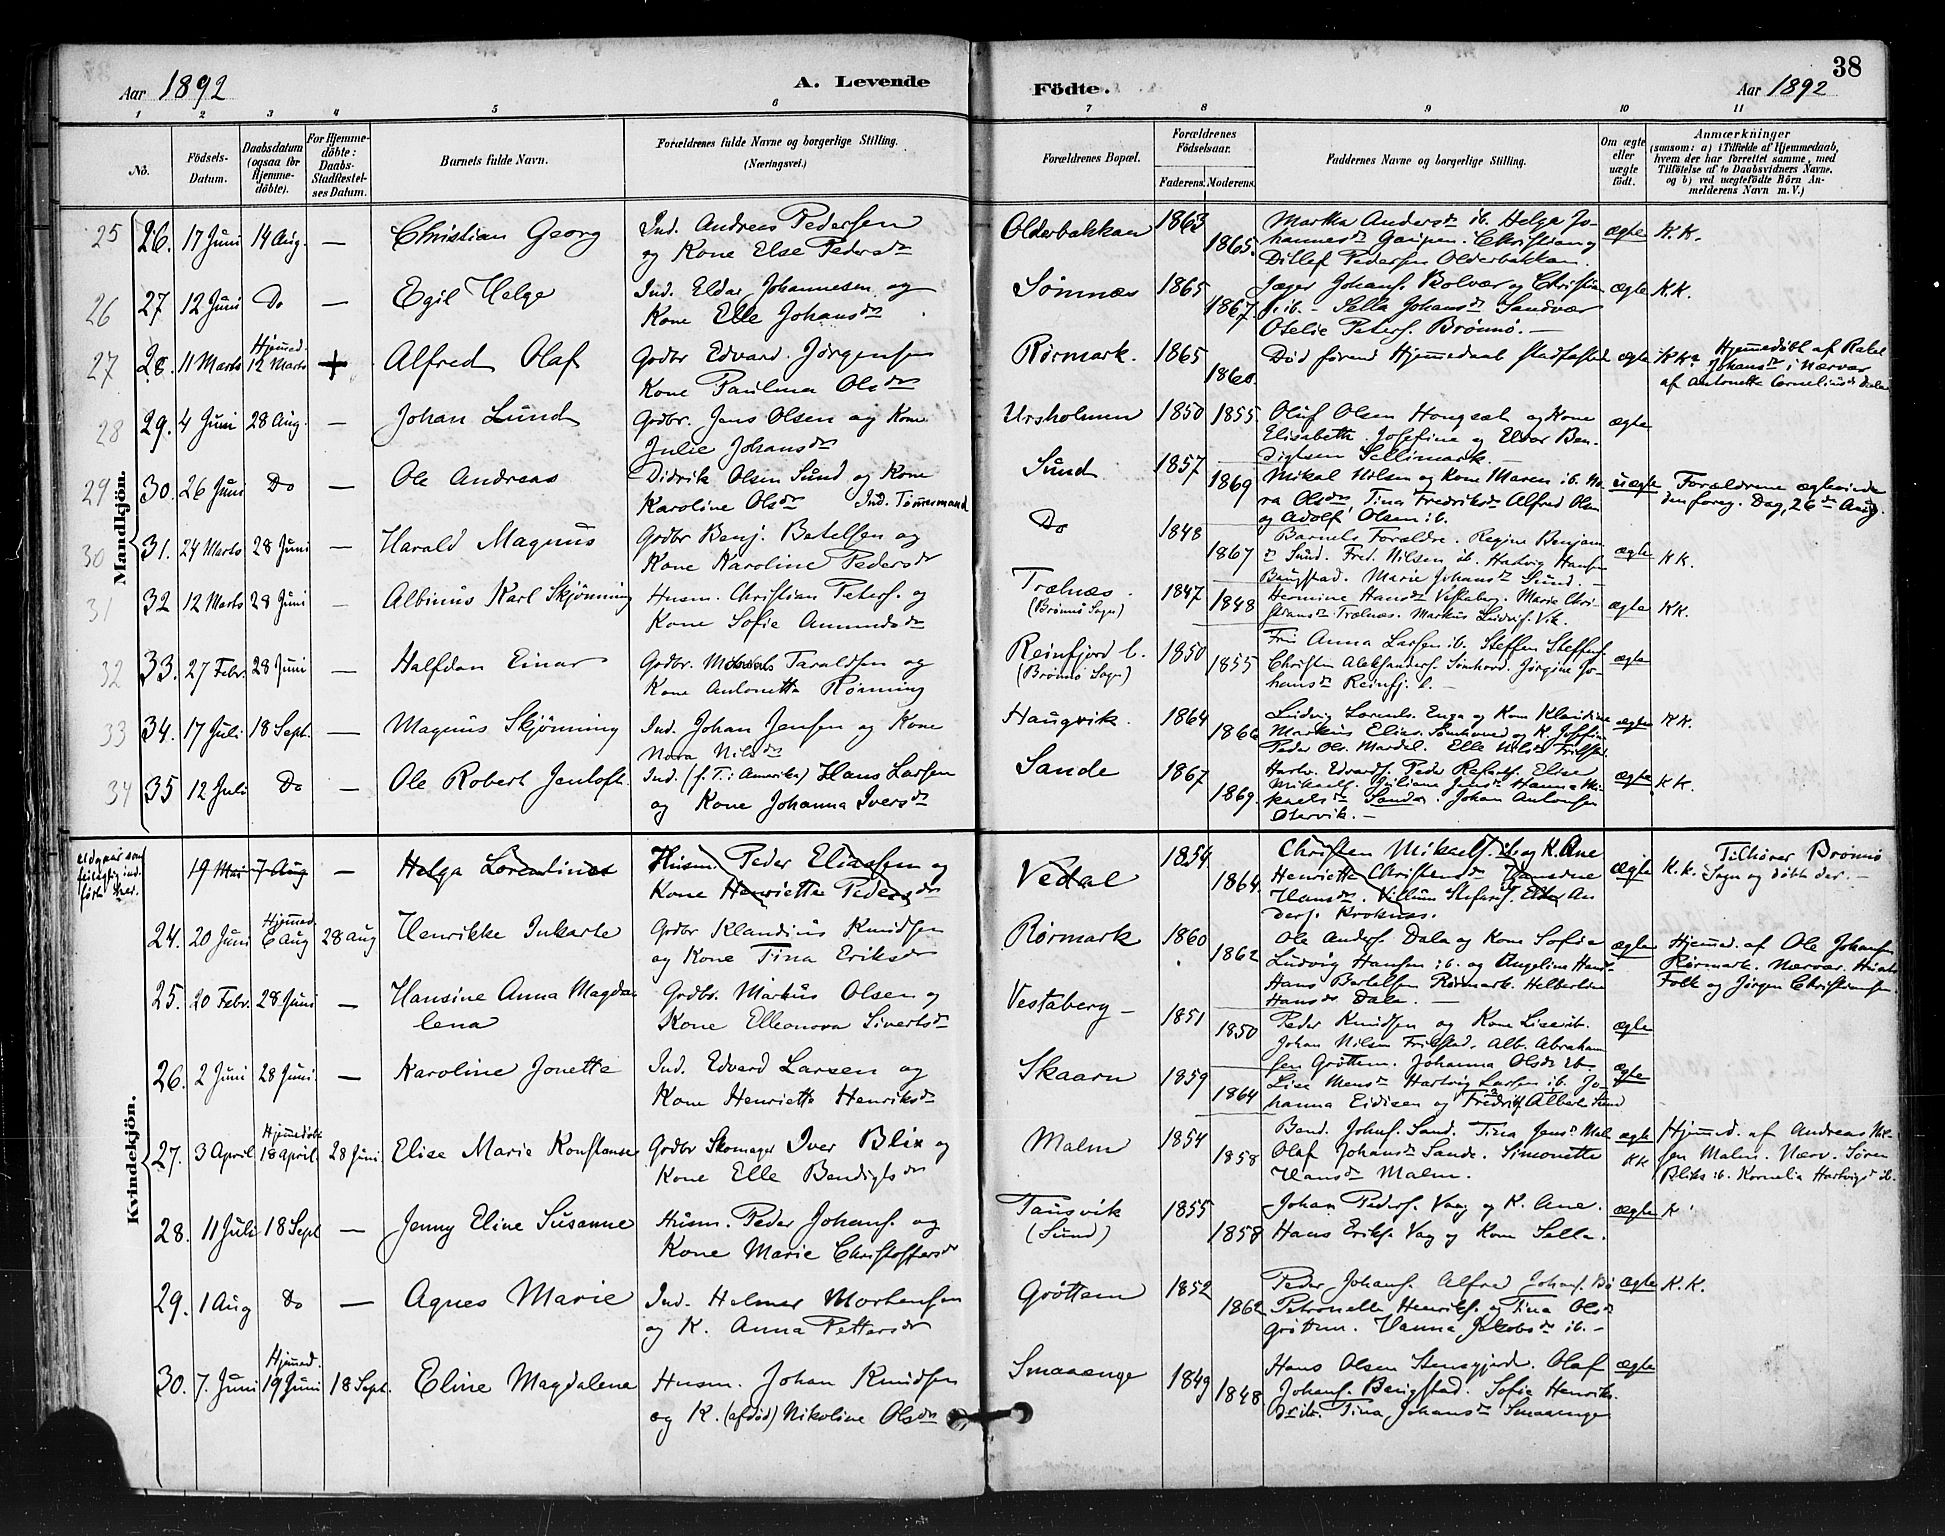 38
Aar 1892
A. Levende
Födte.
Aar 1892
1 2 3 4 5 6 7 8 9 10 11
No.
Födsels-
Datum.
Daabsdatum
(ogsaa for
Hjemme-
döbte).
For Hjemme-
döbte:
Daabs-
Stadfæstel-
ses Datum.
Barnets fulde Navn.
Forældrenes fulde Navne og borgerlige Stilling.
(Næringsvei.)
Forældrenes Bopæl.
Forældrenes
Födselsaar.
Faderens. Moderens.
Faddernes Navne og borgerlige Stilling.
Om ægte
eller
uægte
født.
Anmærkninger
(saasom: a) i Tilfælde af Hjemmedaab,
hvem der har forrettet samme, med
Tilføielse af to Daabsvidners Navne.
og b) ved uægtefödte Börn An-
melderens Navn m. V.)
Mandkjön.
25 26. 17 Juni 14 Aug. — Christian Georg
Ind. Andreas Pedersen
og Kone Else Pedersdr
Olderbakkan 1863 1865.
Martha Andersdr ib. Helga Jo-
hannesdr Gaupen. Christian og
Ditlef Pedersen Olderbakkan.
ægte K.K.
26 27 12 Juni Do — Egil Helge
Ind. Eldar Johannesen og
Kone Elle Johansdr
Sömnæs 1865 1867
Jæger Johans. Bolvær og Christian
ib. - Sella Johansdr Sandvær
Otelie Peters. Brönnö. —
ægte K.K.
27 28. 11 Marts Hjemmed. 12 Marts + Alfred Olaf
Godbr Edvard Jørgensen
Kone Paulina Olsdr
Rørmark. 1865 1860.
Död förend Hjemmedaab stadfæsted
ægte KK Hjemmedöbt af Rakel
Johansdr i Nærvær
af Antonetta Corneliusdr Dale
28 29. 4 Juni 28 Aug. — Johan Lund
Godbr. Jens Olsen og Kone
Julie Johansdr
Ursholmen 1850 1855.
Oluf Olsen Hongsæt og Kone
Elisabeth. Josefine og Eldor Ben-
digtsen Sellimark —
ægte
29 30. 26 Juni Do — Ole Andreas
Didrik Olsen Sund og Kone
Karoline Olsdr Ind. Tømmermand
Sund 1857 1869
Mikal Nilsen og Kone Maren ib. No-
ra Olsdr Tina Fredriksdr Alfred Olsen
og Adolf Olsen ib.
uægte Forældrene ægteviede
den foreg. Dag, 26de Aug.
30 31. 24 Marts 28 Juni — Harald Magnus
Godbr Benj. Batelsen og
Kone Karoline Pedersdr
Do 1848 1867
Barnets Forældre. Regine Benjam
dr Sund. Fred. Nilsen ib. Hartvig Hansen
Baugstad. Marie Johansdr Sund. —
ægte KK.
31 32 12 Marts 28 Juni — Albinus Karl Skjønning
Husm. Christian Peters. og
Kone Sofie Amundsdr
Trælnæs.
(Brönnö Sogn)
1847 1848
Hermine Hansdr Vestaberg. Marie Chri-
stiansdr Trælnæs. Markus Ludvigs. Vik.
ægte KK.
32 33. 27 Febr. 28 Juni — Halfdan Einar
Godbr. Taraldsen og
Kone Antonetta Rönning
Reinfjord l.
(Brönnö Sogn)
1850 1855
Fru Anna Larsen ib. Steffen Steffens.
Christen Aleksanders. Sömhovd. Jørgine Jo-
hansdr Reinfj. l. —
ægte
33 34. 17 Juli 18 Sept. — Magnus Skjönning
Ind. Johan Jensen og Kone
Nora Nilsdr
Haugvik. 1864 1866
Ludvig Lorents. Enga og Kone Klaudine
Markus Elias. Sömhovd og K. Josefine
Peder Ols. Mardal. Elle Nilsdr Frilstad
ægte KK.
34 35 12 Juli Do — Ole Robert Jentoft
Ind. (f. T. i Amerika) Hans Larsen
og Kone Johanna Iversdr
Sande 1867 1869.
Hartv. Edvards. Peder Elise
Mikaels. Juliane Jensdr Hanna Mi-
kaelsdr Sande. Johan Antonsen
Otervik. —
ægte KK.
Kvindekjön.
udgaar som
feilagtig ind-
fört her.
19 Mai 7 Aug — Helga Lorentine
Husm. Peder Eliassen og
Kone Henriette Pedersdr
Vedal 1854 1864
Christen Mikaels. ib. og K. Ane
Henriette Christensdr
Hansdr. Villum Stefans. An-
ders. Kroknæs.
ægte K.K. Tilhører Brönnö
Sogn og döbt der. —
24. 20 Juni Hjemmed. 6 Aug 28 Aug Henrikke Inkarte
Godbr Klaudius Knudsen
og Kone Tina Eriksdr
Rørmark 1860 1862
Ole Anders. Dala og Kone Sofie
Ludvig Hansen ib. og Angeline Hans-
Hans Bertelsen Rørmark. Helbertine
Hansdr Dale. —
ægte Hjemmed. af Ole Johansen
Rørmark. Nærvær. Husets
Folk og Jörgen Christiansen.
25. 20 Febr. 28 Juni — Hansine Anna Magda
lena
Godbr. Markus Olsen og
Kone Elleonora Sivertsdr
Vestaberg — 1851 1850
Peder Knudsen og Kone Lise ib.
Johan Nilsen Frilstad. Alb. Abraham
sen Gröttem. Johanna Olsdr
ægte
26. 2 Juni 28 Juni. — Karoline Jonette
Ind. Edvard Larsen og
Kone Henrietta Henriksdr
Skaarn 1859 1864
Lise Monsdr Hartvig Larsen ib. Jo-
hanna Eidisen og Fredrik Albert Sund
ægte
27. 3 April Hjemmedöbt 18 April. 28 Juni. Elise Marie Konstanse
Godbr Skomager Iver Blix og
Kone Elle Bendigtsdr
Malm 1854 1858
Bend. Johns. Sand. Tina Jensdr Malm
Olaf Johansdr Sande. Simonette
Hansdr Malm.
ægte KK Hjemmed. af Andreas Nil-
sen Malm. Nærv. Sören
Bliks ib. Kornelia Hartvigs ib.
28. 11 Juli 18 Sept — Jenny Eline Susanne
Husm. Peder Johans. og
Kone Marie Christoffersdr
Tausvik
(Sund)
1855 1858
Johan Peders. Vaag og K. Ane.
Hans Eriks. Vaag og Kone Sella.
ægte K
29. 1 Aug Do — Agnes Marie
Ind. Helmer Mortensen
og K. Anna Pettersdr
Gröttem 1852 1862
Peder Johans. Alfred Johans. Bö
Petronelle Henriks. og Tina Olsdr
Gröttem. Hanna Jakobsdr ib. —
ægte K.K.
30. 7. Juni Hjemmed. 19 Juni 18 Sept. Eline Magdalena
Husm. Johan Knudsen
og K. (afdöd) Nikoline Olsdr
Smaaenge 1849 1848
Hans Olsen Stensgjerde. Olaf
Johans. Baugstad. Sofie Henriks
Tina Johansdr Smaaenge
ægte